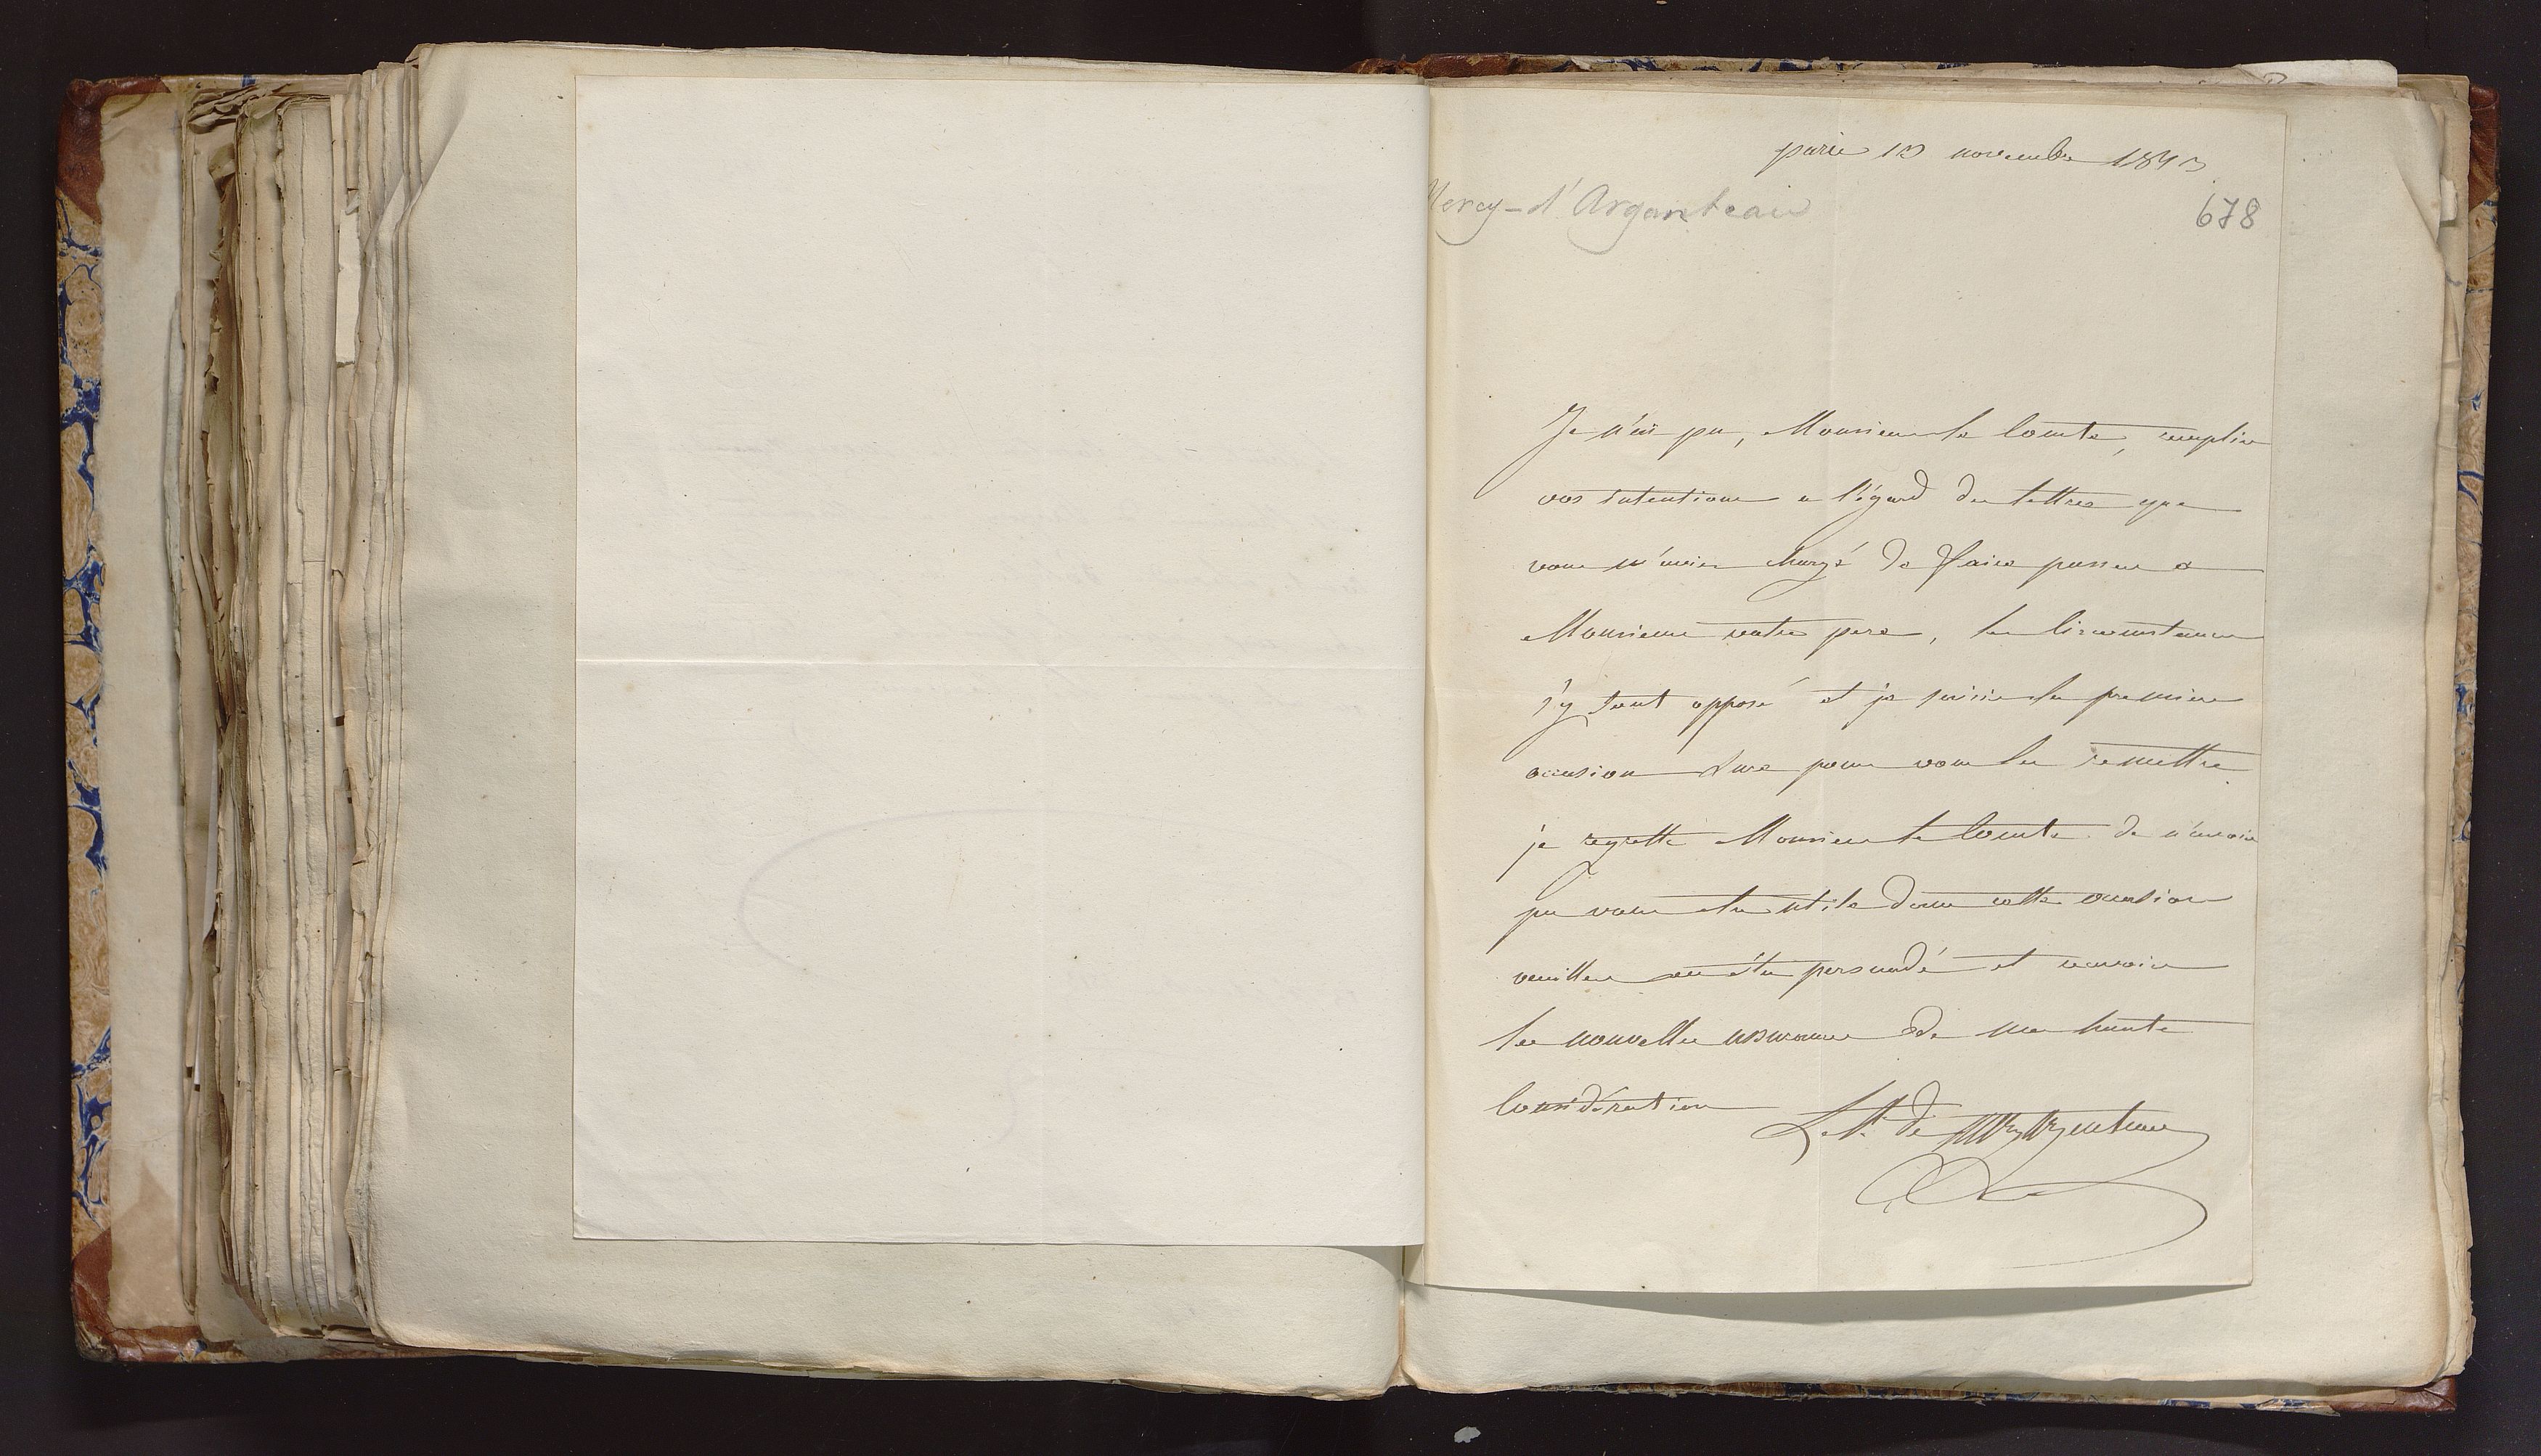 paris 13 novembre 1813
Mercy-d'Arganteau
678
Je n'ai pu, Monsieur le Comte, remplir
vos intentions a l'égard des lettres que
vous m'aviez chargé de faire passer a
Monsieur votre pere, les Circonstances
s'y sont opposé et je saisis la premiere
occasion sure pour vous les remettre
je regrette Monsieur le Comte de n'avoir
pu vous etre utile dans cette occasion
veuillez en être persuadé et recevoir
les nouvelles assurances de ma haute
Considération
Le Cte de Mercy Argenteau